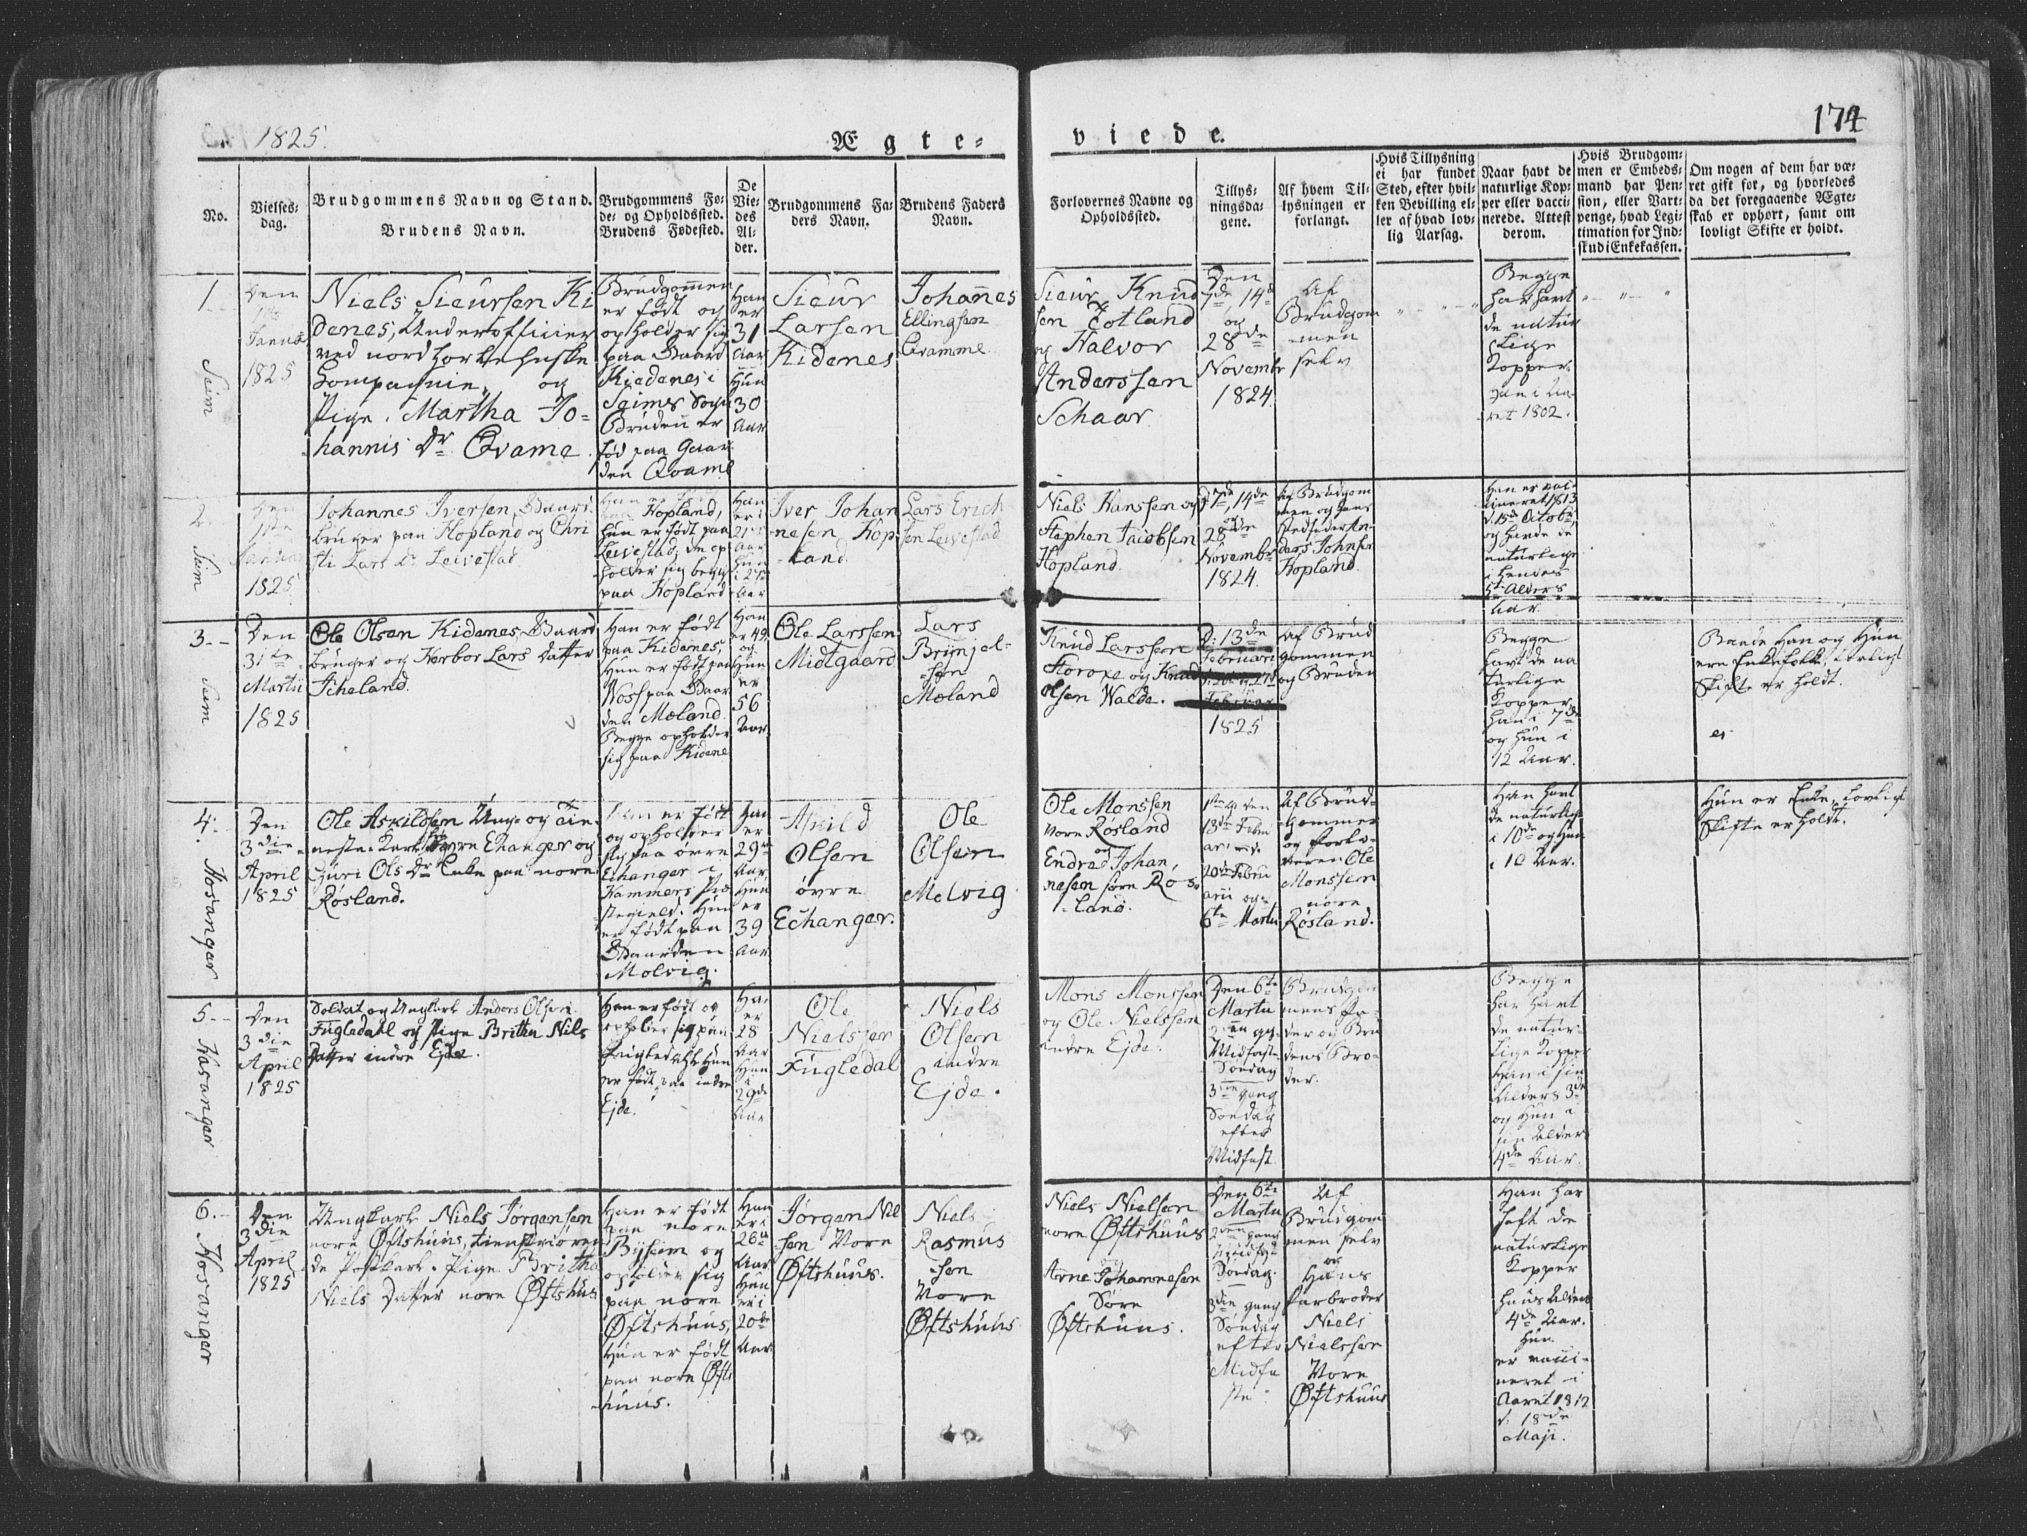 1825.
Ægte-
viede.
174
No.
Vielses-
dag.
Brudgommens Navn og Stand.
Brudens Navn.
Brudgommens Fø-
de- og Opholdssted.
Brudens Fødested.
De
Vie-
des
Al-
der.
Brudgommens Fa-
ders Navn.
Brudens Faders
Navn.
Forlovernes Navne og
Opholdssted.
Tillys-
ningsda-
gene.
Af hvem Til-
lysningen er
forlangt.
Hvis Tillysning
ei har fundet
Sted, efter hvil-
ken Bevilling el-
ler af hvad lov-
lig Aarsag.
Naar havt de
naturlige Kop-
per eller vacci-
nerede. Attest
derom.
Hvis Brudgom-
men er Embeds-
mand har Pen-
sion, eller Vart-
penge, hvad Legi-
timation for Ind-
skud i Enkekassen.
Om nogen af dem har væ-
ret gift før, og hvorledes
da det foregaaende Ægte-
skab er ophørt, samt om
lovligt Skifte er holdt.
1.
Seim
Den
Janua
1825
Niels Sieursen Ki
denes, Underofficier
ved nordhorlehuske
Compagnie, og
Pige. Martha Jo-
hannis Dr Qvame
Brudgommen
er født og
opholder sig
paa Gaard
Kiedenes i
Seims Sogn
Bruden er
fød paa Gaar
den Qvame
Han
er
31
Aar
Hun
30
Aar
Sieur
Larsen
Kidenes
Johannes
Ellingsen
Qvamme
Sieur Knud
sen Fotland
og Halvor
Anderssen
Schaar.
Den
7de 14de
og
28de
November
1824.
Af
Brudgom
men
selv
Begge
har havt
de natur
lige
Kopper
han i Aa
ret 1802.
2.
Sem
Den
1825
Johannes Iversen, Gaard
bruger paa Hopland og Chri
sti Lars Dr Leivestad
Hopland,
hun er født paa
Leivestad, de op
holder sig begge
paa Hopland
Han
er i
21
Aar
hun
i 27
Aar
Iver Johan
nesen Hop
land
Lars Erich
sen Leivestad
Niels Hanssen og
Stephen Jacobsen
Hopland
d 7de, 14de
og
28de
Novembr
1824.
Af Brudgom
men og hans
Stedfader An
ders Johnsen
Hopland
Han er vac
cineret 1813
d. 15de Octobr,
og havde de
naturlige
i hendes
5te Alders
Aar.
3.
Sem
Den
31te
Martii
1825
Ole Olsen Kidenes, Gaard
bruger og Herbor Lars Datter
Icheland.
Han er født
paa Kidenes,
Hun er født paa
Voss paa Gaar
den Mæland
Begge opholder
sig paa Kidene
Han
er 49
og
Hun
er
56
Aar
Ole Larssen
Midtgaard
Lars
Brinjel-
sen
Mæland
Knud Larssen
Storoxe og Knud
Olsen Walde.
D: 13de
Februari
1825
Af Brud
gommen
og Bruden
Begge
havt de na
turlige
Kopper
han i 7de
og hun i
12 Aar.
Baade Han og Hun
ere Enkefolk, Lovligt
Skifte er holdt.
4.
Hosanger
Den
3die
April
1825
Ole Askildsen Unge og Tie
neste-Karl øvre Ehanger og
Guri Ols Dr Enke paa nore
Røsland.
Han er født
og opholder
sig paa øvre
Eihanger i
Hammers Præ
stegield. Hun
er født paa
Gaarden
Molvig.
Han
er
29
Aar
Hun
er
39
Aar
Askild
Olsen
øvre
Echanger.
Ole
Olsen
Molvig
Ole Monssen
nore Røsland
og
Endred Johan,
nesen søre Røs
land.
1ste g den
13de Febru
arii
20de Febru
arii og
6te Martii
Af Brud-
gommen
og Forlo
veren Ole
Monssen
nore
Røsland.
Han havt
de naturlige
i 10de og Hun
i 10 Aar.
Hun er Enke, Lovligt
Skifte er holdt.
5.
Hosanger
Den
3die
April
1825
Soldat og Ungkarl Anders Olsen
Fugledahl og Pige Britta Niels
Datter indre Ejde.
Han er født og
opholder sig paa
Fugledahl Hun
er født paa indre
Ejde.
Ha-
er
28
Aar
Hun
i
29de
Aar
Ole
Nielssen
Fugledal
Niels
Olsen
indre
Ejde.
Mons Monssen
og Ole Nielssen
indre Ejde.
Den 6te
Martii
2den gg.
Midfaste
Søndag
3die gang
Søndag
efter
Midfast
Brudgom
mens Fa-
der og Bru
dens Bro-
der.
Begge
har havt
de natur-
lige Kopper
han i sin
Alders 3de
og Hun i
sin Alder
4de Aar.
6.
Hosanger
Den
3die
April
1825
Ungkarl Niels Jørgensen
nore Øftshuus,
Pige Britha
Niels Datter nore Øftshus
Han er født
paa nore
Bysem og
opholder sig
paa nore
Øftshuus,
Hun er født
paa nore Øfts
huus.
Han
er i
26de
Aar
Hun
er i
20de
Aar
Jørgen Nil
sen Nore
Øftshuus.
Niels
Rasmus
sen
Nore
Øftshuus
Niels Nielsen
nore Øftshuus
og
Arne Johannesen
Søre
Øftshuus.
Den 6te
Martii
2den gang
Midfast
Søndag.
3die gang
Søndag
efter
Midfa
ste
Af
Brudgom
men selv
og
Hans
Farbroder
Niels
Nielssen
Nore
Øftshuus
Han har
haft de
naturlige
Kopper
i hans Alders
4de Aar.
Hun
er vacci-
neret i
Aaret 1812
d. 18de
Maji.